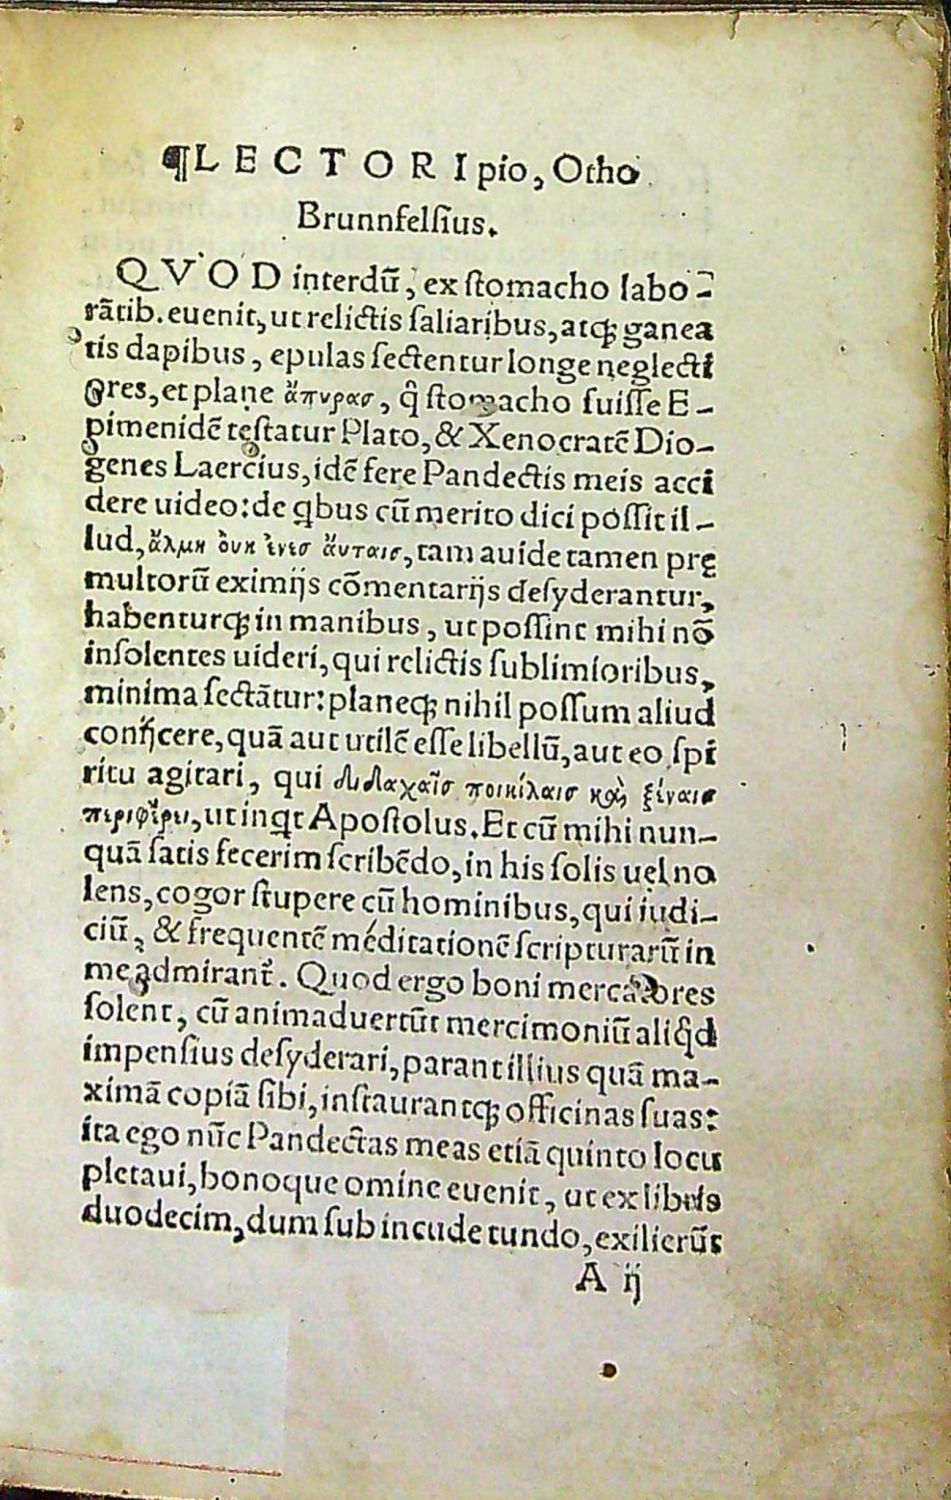 ¶LECTORI pio, Otho
Brunnfelsius.
QVOD interdū, ex stomacho labo-
rātib. euenit, ut relictis saliaribus, atqꝫ ganea
tis dapibus, epulas sectentur longe neglecti
ores, et plane ἄπυρασ, q̄ stomacho fuisse E-
pimenidē testatur Plato, & Xenocratē Dio-
genes Laercius, idē fere Pandectis meis acci
dere uideo: de qbus cū merito dici possit il-
lud, ἄλμη ὀυκ ἔνεσ ἄυταισ, tam auide tamen prę
multorū eximijs cōmentarijs desyderantur,
habenturqꝫ in manibus, ut possint mihi nō
insolentes uideri, qui relictis sublimioribus,
minima sectātur: planeqꝫ nihil possum aliud
conijcere, quā aut utilē esse libellū, aut eo spi
ritu agitari, qui διδαχαῖσ ποικίλαισ καὶ ξέναισ
περιφέρει, ut inqt Apostolus. Et cū mihi nun-
quā satis fecerim scribēdo, in his solis uel no
lens, cogor stupere cū hominibus, qui iudi-
ciū, & frequentē méditationē scripturarū in
me admirant᷑. Quod ergo boni mercatores
solent, cū animaduertūt mercimoniū aliqd
impensius desyderari, parant illius quā ma-
ximā copiā sibi, instaurantqꝫ officinas suas:
ita ego nūc Pandectas meas etiā quinto locu
pletaui, bonoque omine euenit, ut ex libris
duodecim, dum sub incude tundo, exilierūt
A ij